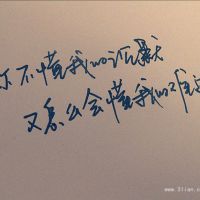 你不懂我的沉默
又怎么会懂我的难
www.3lian.co